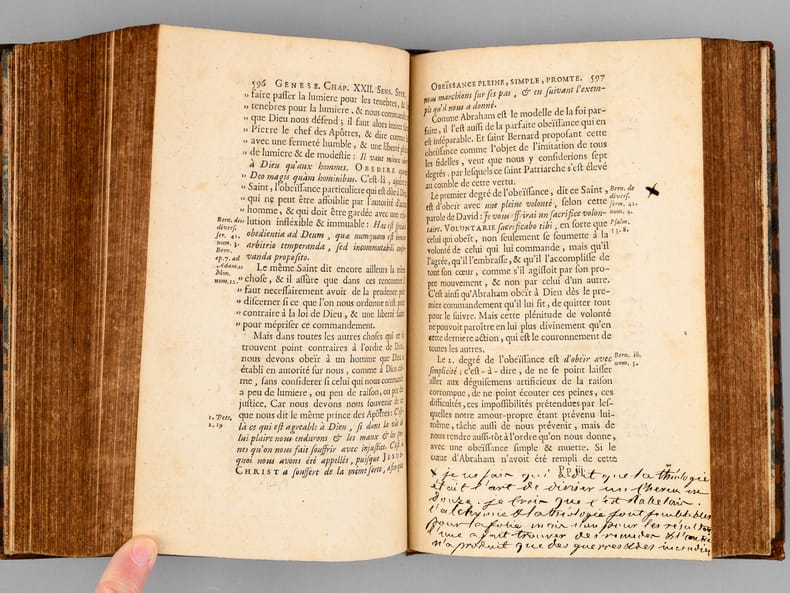 596 GENESE. CHAP. XXII. SENS. SPIR.
„ faire passer la lumiere pour les tenebres, & les
„ tenebres pour la lumiere. & nous commandent
„ que Dieu nous défend ; il faut alors imiter
„ Pierre le chef des Apôtres, & dire comme
„ avec une fermeté humble, & une liberté pleine
„ de lumiere & de modestie : Il vaut mieux obeïr
„ à Dieu qu'aux hommes. OBEDIRE oportet
„ Deo magis quàm hominibus. C'est-là, ajoute
„ Saint, l'obeïssance particuliere qui est dûe à Dieu
„ qui ne peut être affoiblie par l'autorité d'aucun
„ homme, & qui doit être gardée avec une reso-
„ lution inflexible & immuable : Hæc est specialis
obedientia ad Deum, quæ nunquam est hominis
arbitrio temperanda, sed incommutabili conser-
vanda proposito.
Bern. de
divers.
ser. 41.
num. 3.
Bern.
ep. 7. ad
Adam.
Mon.
num. 12.
Le même Saint dit encore ailleurs la même
„ chose, & il assure que dans ces rencontres il
„ faut necessairement avoir de la prudence pour
„ discerner si ce que l'on nous ordonne n'est point
„ contraire à la loi de Dieu, & une liberté sainte
„ pour mépriser ce commandement.
Mais dans toutes les autres choses qui ne se
trouvent point contraires à l'ordre de Dieu,
nous devons obeïr à un homme que Dieu a
établi en autorité sur nous, comme à Dieu mê-
me, sans considerer si celui qui nous commande
a peu de lumiere, ou peu de raison, ou peu de
justice. Car nous devons nous souvenir de ce
que nous dit le même prince des Apôtres : C'est
là ce qui est agreable à Dieu, si dans la vûe de
lui plaire nous endurons & les maux & les pei-
nes qu'on nous fait souffrir avec injustice. C'est à
quoi nous avons été appellés, puisque JESUS-
CHRIST a souffert de la même sorte, afin que
1. Petr.
2. 19
OBEÏSSANCE PLEINE, SIMPLE, PROMTE. 597
nous marchions sur ses pas, & en suivant l'exem-
ple qu'il nous a donné.
Comme Abraham est le modelle de la foi par-
faite, il l'est aussi de la parfaite obeïssance qui en
est inséparable. Et saint Bernard proposant cette
obeïssance comme l'objet de l'imitation de tous
les fidelles, veut que nous y considerions sept
degrés, par lesquels ce saint Patriarche s'est élevé
au comble de cette vertu.
Le premier degré de l'obeïssance, dit ce Saint,
est d'obeïr avec une pleine volonté, selon cette
parole de David : Je vous offrirai un sacrifice volon-
taire. VOLUNTARIE sacrificabo tibi, en sorte que
celui qui obeït, non seulement se soumette à la
volonté de celui qui lui commande, mais qu'il
l'agrée, qu'il l'embrasse, & qu'il l'accomplisse de
tout son cœur, comme s'il agissoit par son pro-
pre mouvement, & non par celui d'un autre.
C'est ainsi qu'Abraham obeït à Dieu dès le pre-
mier commandement qu'il lui fit, de quitter tout
pour le suivre. Mais cette plénitude de volonté
ne pouvoit paroître en lui plus divinement qu'en
cette derniere action, qui est le couronnement de
toutes les autres.
Bern. de
divers.
serm. 41.
num. 4.
Psalm.
53. 8.
Le 2. degré de l'obeïssance est d'obeïr avec
simplicité ; c'est-à-dire, de ne se point laisser
aller aux déguisemens artificieux de la raison
corrompue, de ne point écouter ces peines, ces
difficultés, ces impossibilités prétendues par les-
quelles notre amour-propre étant prévenu lui-
même, tâche aussi de nous prévenir, mais de
nous rendre aussi-tôt à l'ordre qu'on nous donne,
avec une obeïssance simple & muette. Si le
cœur d'Abraham n'avoit été rempli de cette
Bern. ib.
num. 5.
x je ne sais qui a dit que la theologie
était l'art de diviser un cheveu en
douze. je crois que c'est Rabelais
l'alchymie & la théologie sont semblables
pour la folie mais non pour les resultats
l'une a fait trouver des remedes & l'autre
n'a produit que des guerres & des incendies